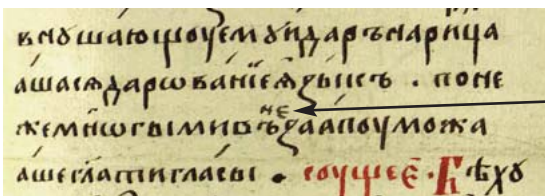 внꙋшающоуемꙋидаръ нарица
ашасѧдарѡванїеѧꙁыкъ . поне
не
жемнѡгымивъꙁаапоуможа
ашеглатигласы . соущее . Бѣхꙋ